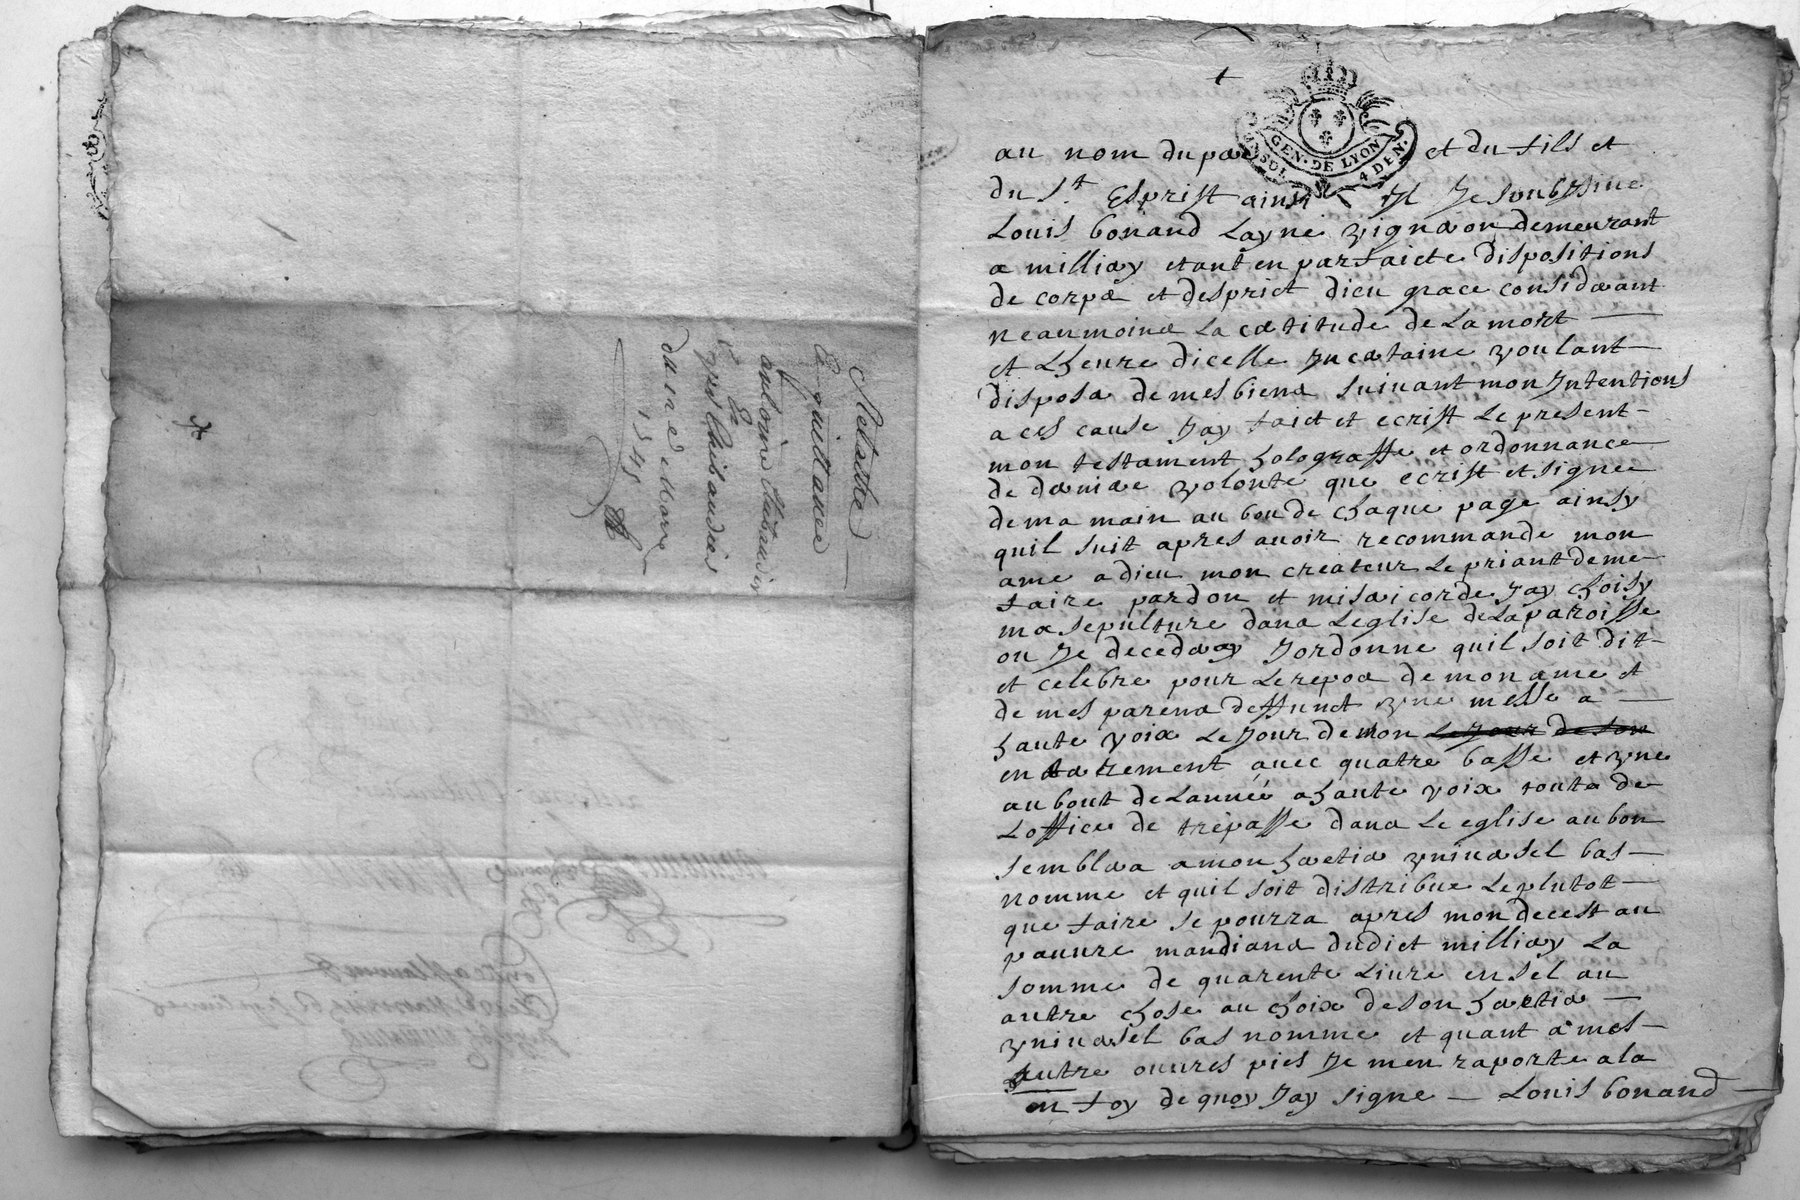 Retraitte
Et quittance
Anthoine Thibaudier
Et
Cyprès Thibaudier
du 21e de Mars
1745
GEN · DE LYON
UN SOL
4 DEN.
au nom du pœ et du fils et
du St. Esprist ainsi Je soubzine
Louis bonand Layne vignœon demeurant
a milliœy etant en parfaicte dispositions
de corpœ et desprict dieu grace considœant
neaumoinœ La cœtitude de La mort
et Lheure dicelle Jncœtaine voulant
disposœ de mes bienœ suivant mon Jntentions
a ces cause Jay faict et ecrist Le present
mon testament holograffe et ordonnance
de dœniœ volonte que ecrist et signee
de ma main au bou de chaque page ainsy
quil suit apres auoir recommande mon
ame a dieu mon createur Le priant de me
faire pardon et misœicorde Jay choisy
ma sepulture danœ Leglise de La paroisse
ou Je decedœay Jordonne quil soit dit
et celebre pour Le repoœ de mon ame et
de mes parenœ deffunct vne messe a
haute voix Le Jour de mon Le Jour de son
entœrement auec quatre basse et vne
au bout de Lanneé a haute voix toutœ de
Loffice de trépasse danœ Le eglise au bon
semblœa a mon hœtiœ vniuœsel bas
nomme et quil soit distribue Le plutot
que faire se pourra apres mon decest au
pauure mandianœ dudict milliœy La
somme de quarente Liure en sel au
autre chose au choix de son hœrtiœ
vniuœsel bas nomme et quant a mes
autre ouures pies Je men raporte a la
en foy de quoy Jay signe — Louis bonand